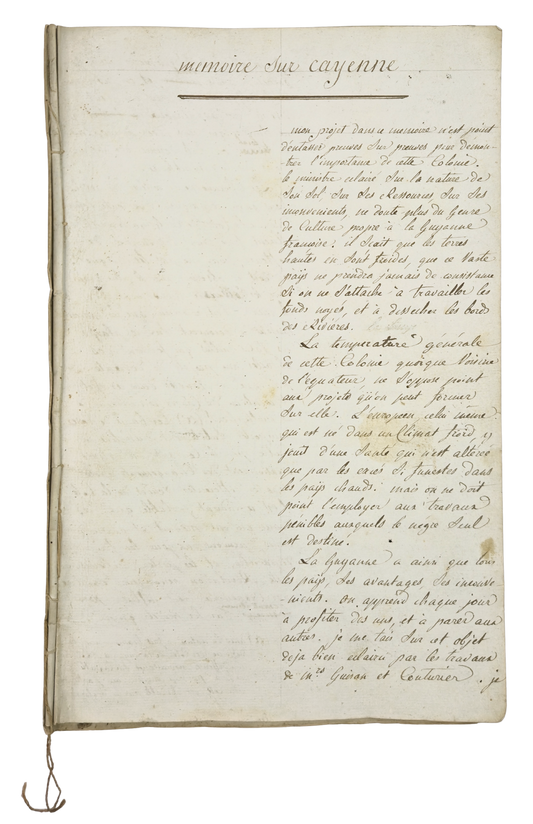 memoire sur cayenne
mon projet dans ce memoire n'est point
d'entasser preuves sur preuves pour demon-
trer l'importance de cette Colonie.
le ministre eclairé sur la nature de
son sol sur ses Ressources, sur ses
inconvenients, ne doute plus du Genre
de Culture propre à la Guyanne
françoise: il scait que les terres
hautes en sont froides, que ce vaste
païs ne prendra jamais de consistance
si on ne s'attache à travailler les
fonds noyés, et à dessecher les bords
des Rivieres.
La temperature générale
de cette Colonie quoique voisine
de l'equateur, ne s'oppose point
aux projets qu'on peut former
sur elle. L'européen, celui meme
qui est né dans un Climat froid, y
jouit d'une santé qui n'est alterée
que par les excès si funestes dans
les païs chauds: mais on ne doit
point l'employer aux travaux
penibles auxquels le negre seul
est destiné.
La Guyanne a ainsi que tous
les païs, ses avantages, ses inconve
nients. on apprend chaque jour
à profiter des uns, et à parer aux
autres. je me tais sur cet objet
deja bien eclairci par les travaux
de mrs Guisan et Couturier. je